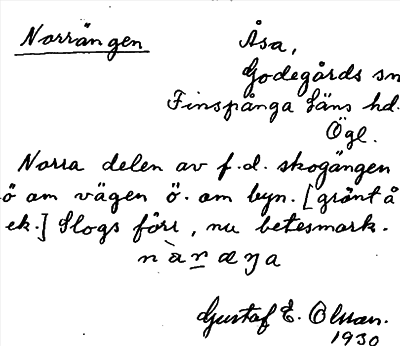 Norrängen
Åsa,
Godegårds sn
Finspånga läns hd.
Ögl.
Norra delen av f.d. skogängen
ö om vägen ö. om byn. [grönt å
ek.] Slogs förr, nu betesmark.
Gustaf E. Olsson.
1930